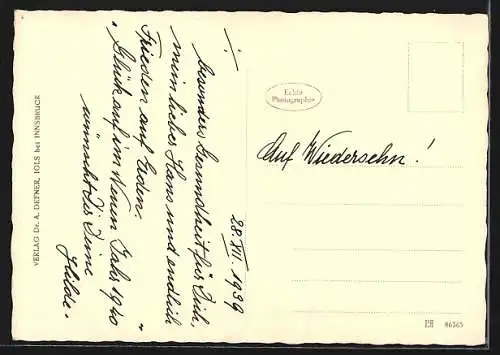 28. XII. 1939
besonders Gesundheit für Dich,
mein lieber Hans und endlich
Frieden auf Erden.
"Glück auf im Neuen Jahr 1940"
wünscht Dir Deine
Hilde.
Auf Wiedersehn!
Echte
Photographie
VERLAG DR. A. DEFNER, IGLS bei INNSBRUCK
86365